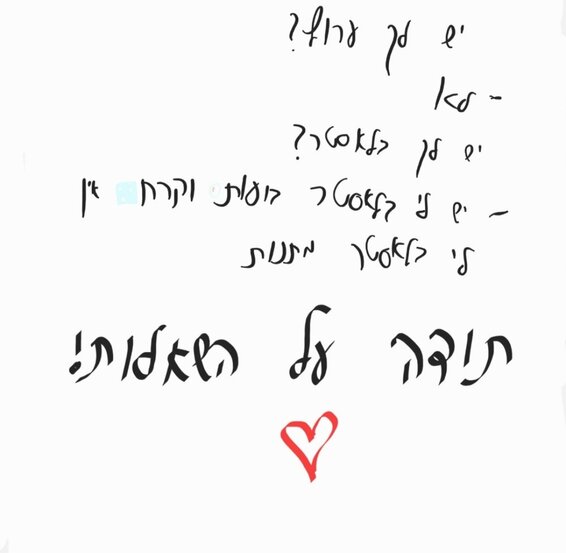 יש לך ערוץ?
- לא
יש לך בלאסטר?
- יש לי בלאסטר בועות וקרח אין
לי בלאסטר מתנות
תודה על השאלות!